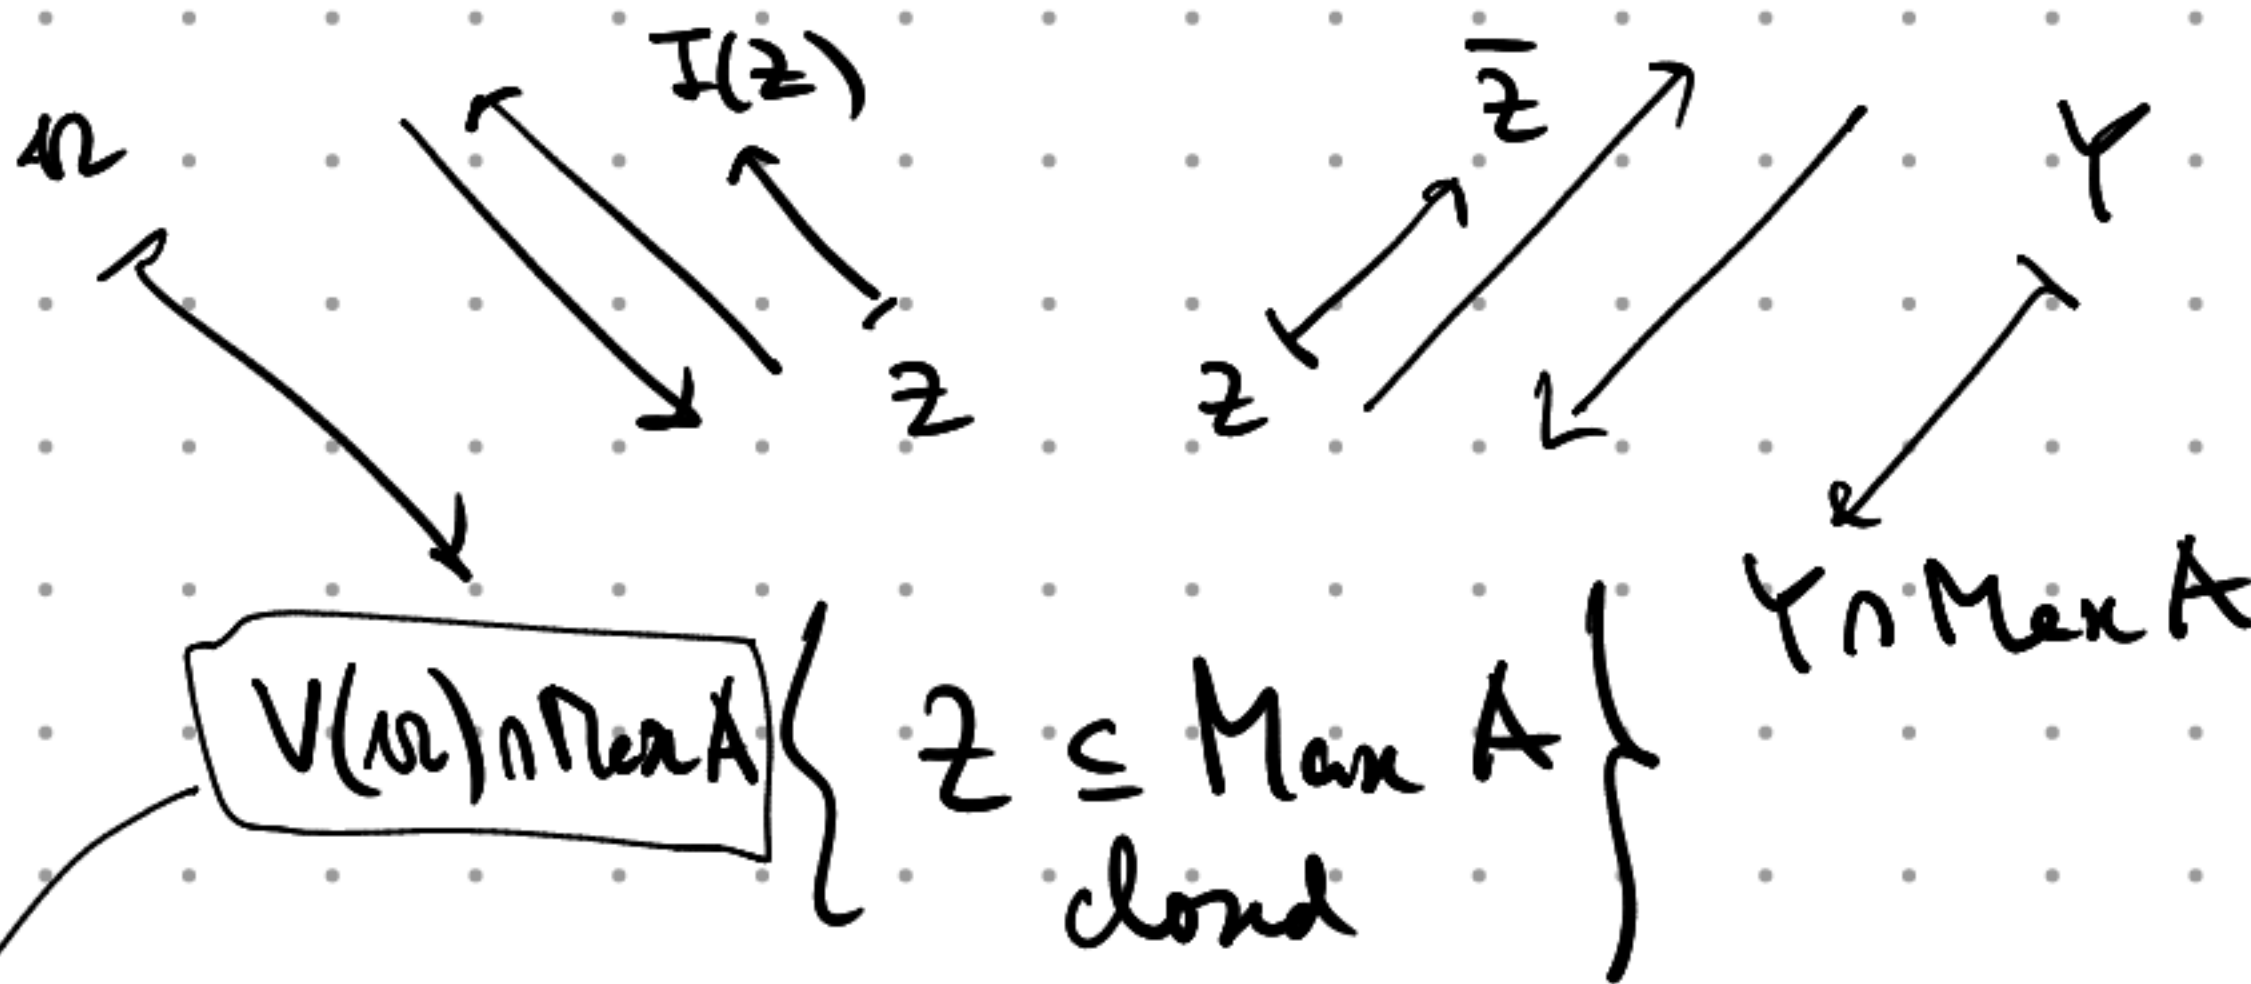 I(Z) Z̄
𝔞 Y
Z Z
Y ∩ Max A
V(𝔞) ∩ Max A { Z ⊆ Max A }
closed